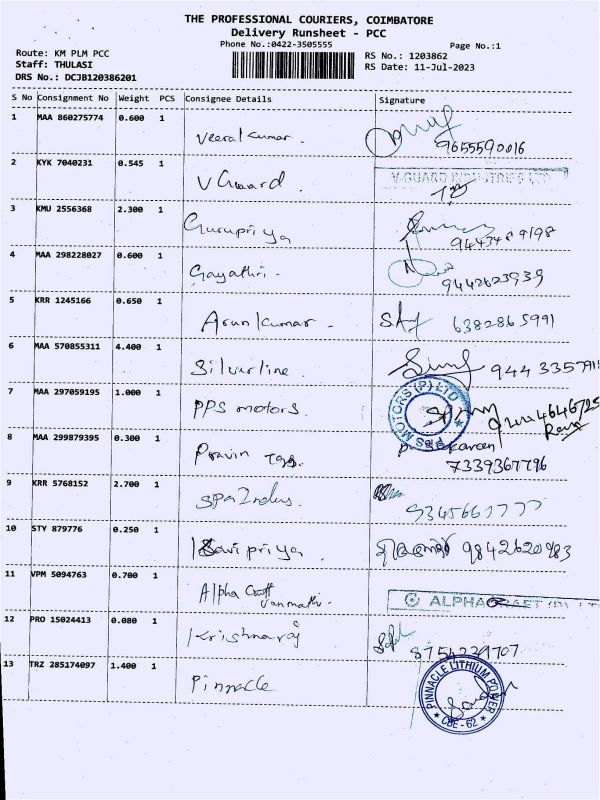 THE PROFESSIONAL COURIERS, COIMBATORE
Delivery Runsheet - PCC
Phone No.:0422-3505555
Page No.:1
Route: KM PLM PCC
Staff: THULASI
DRS No.: DCJB120386201
RS No.: 1203862
RS Date: 11-Jul-2023
S No Consignment No Weight PCS Consignee Details Signature
1 MAA 860275774 0.600 1 Veerakumar. 9655590016
2 KYK 7040231 0.545 1 V Guard. V-GUARD INDUSTRIES LTD
3 KMU 2556368 2.300 1 Gurupriya 9443489198
4 MAA 298228027 0.600 1 Gayathri. 9442623939
5 KRR 1245166 0.650 1 Arun kumar. 6382865991
6 MAA 570855311 4.400 1 Silverline. 944 335791
7 MAA 297059195 1.000 1 PPS motors. PPS MOTORS (P) LTD
8 MAA 299879395 0.300 1 Pravin 7339367796
9 KRR 5768152 2.700 1 Spa Indus.
10 STY 879776 0.250 1 Savipriya. 9842620983
11 VPM 5094763 0.700 1 Alpha Craft ALPHA CRAFT (P) LT
12 PRO 15024413 0.080 1 Krishnaraj 8754229707
13 TRZ 285174097 1.400 1 Pinnacle PINNACLE LITHIUM POWER CBE-62